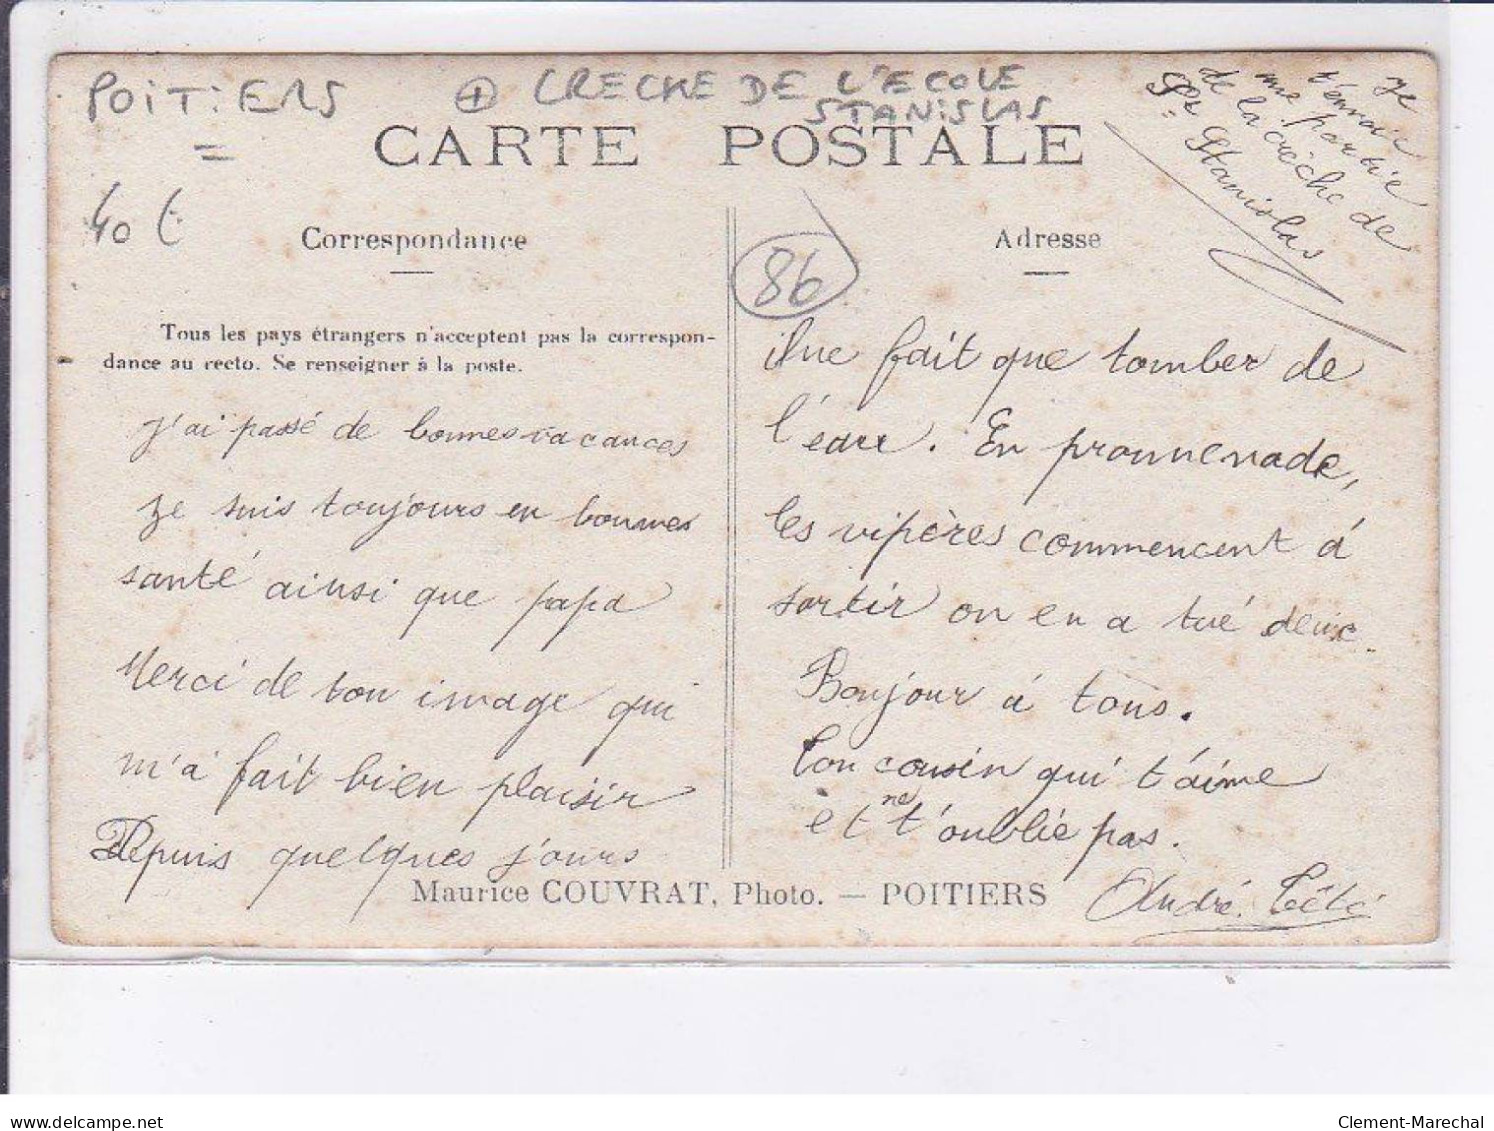 POITIERS ⊕ CRECHE DE L'ECOLE
STANISLAS
Je
t'envoie
une partie
de la crèche de
St Stanislas
CARTE POSTALE
40 €
Correspondance
Adresse
86
Tous les pays étrangers n'acceptent pas la correspon-
dance au recto. Se renseigner à la poste.
J'ai passé de bonnes vacances
Je suis toujours en bonnes
santé ainsi que papa
Merci de ton image qui
m'a fait bien plaisir
Depuis quelques jours
il ne fait que tomber de
l'eau. En promenade,
les vipères commencent à
sortir on en a tué deux.
Bonjour à tous.
Ton cousin qui t'aime
et ne t'oublie pas.
André
Maurice COUVRAT, Photo. — POITIERS
www.delcampe.net
Clement-Marechal